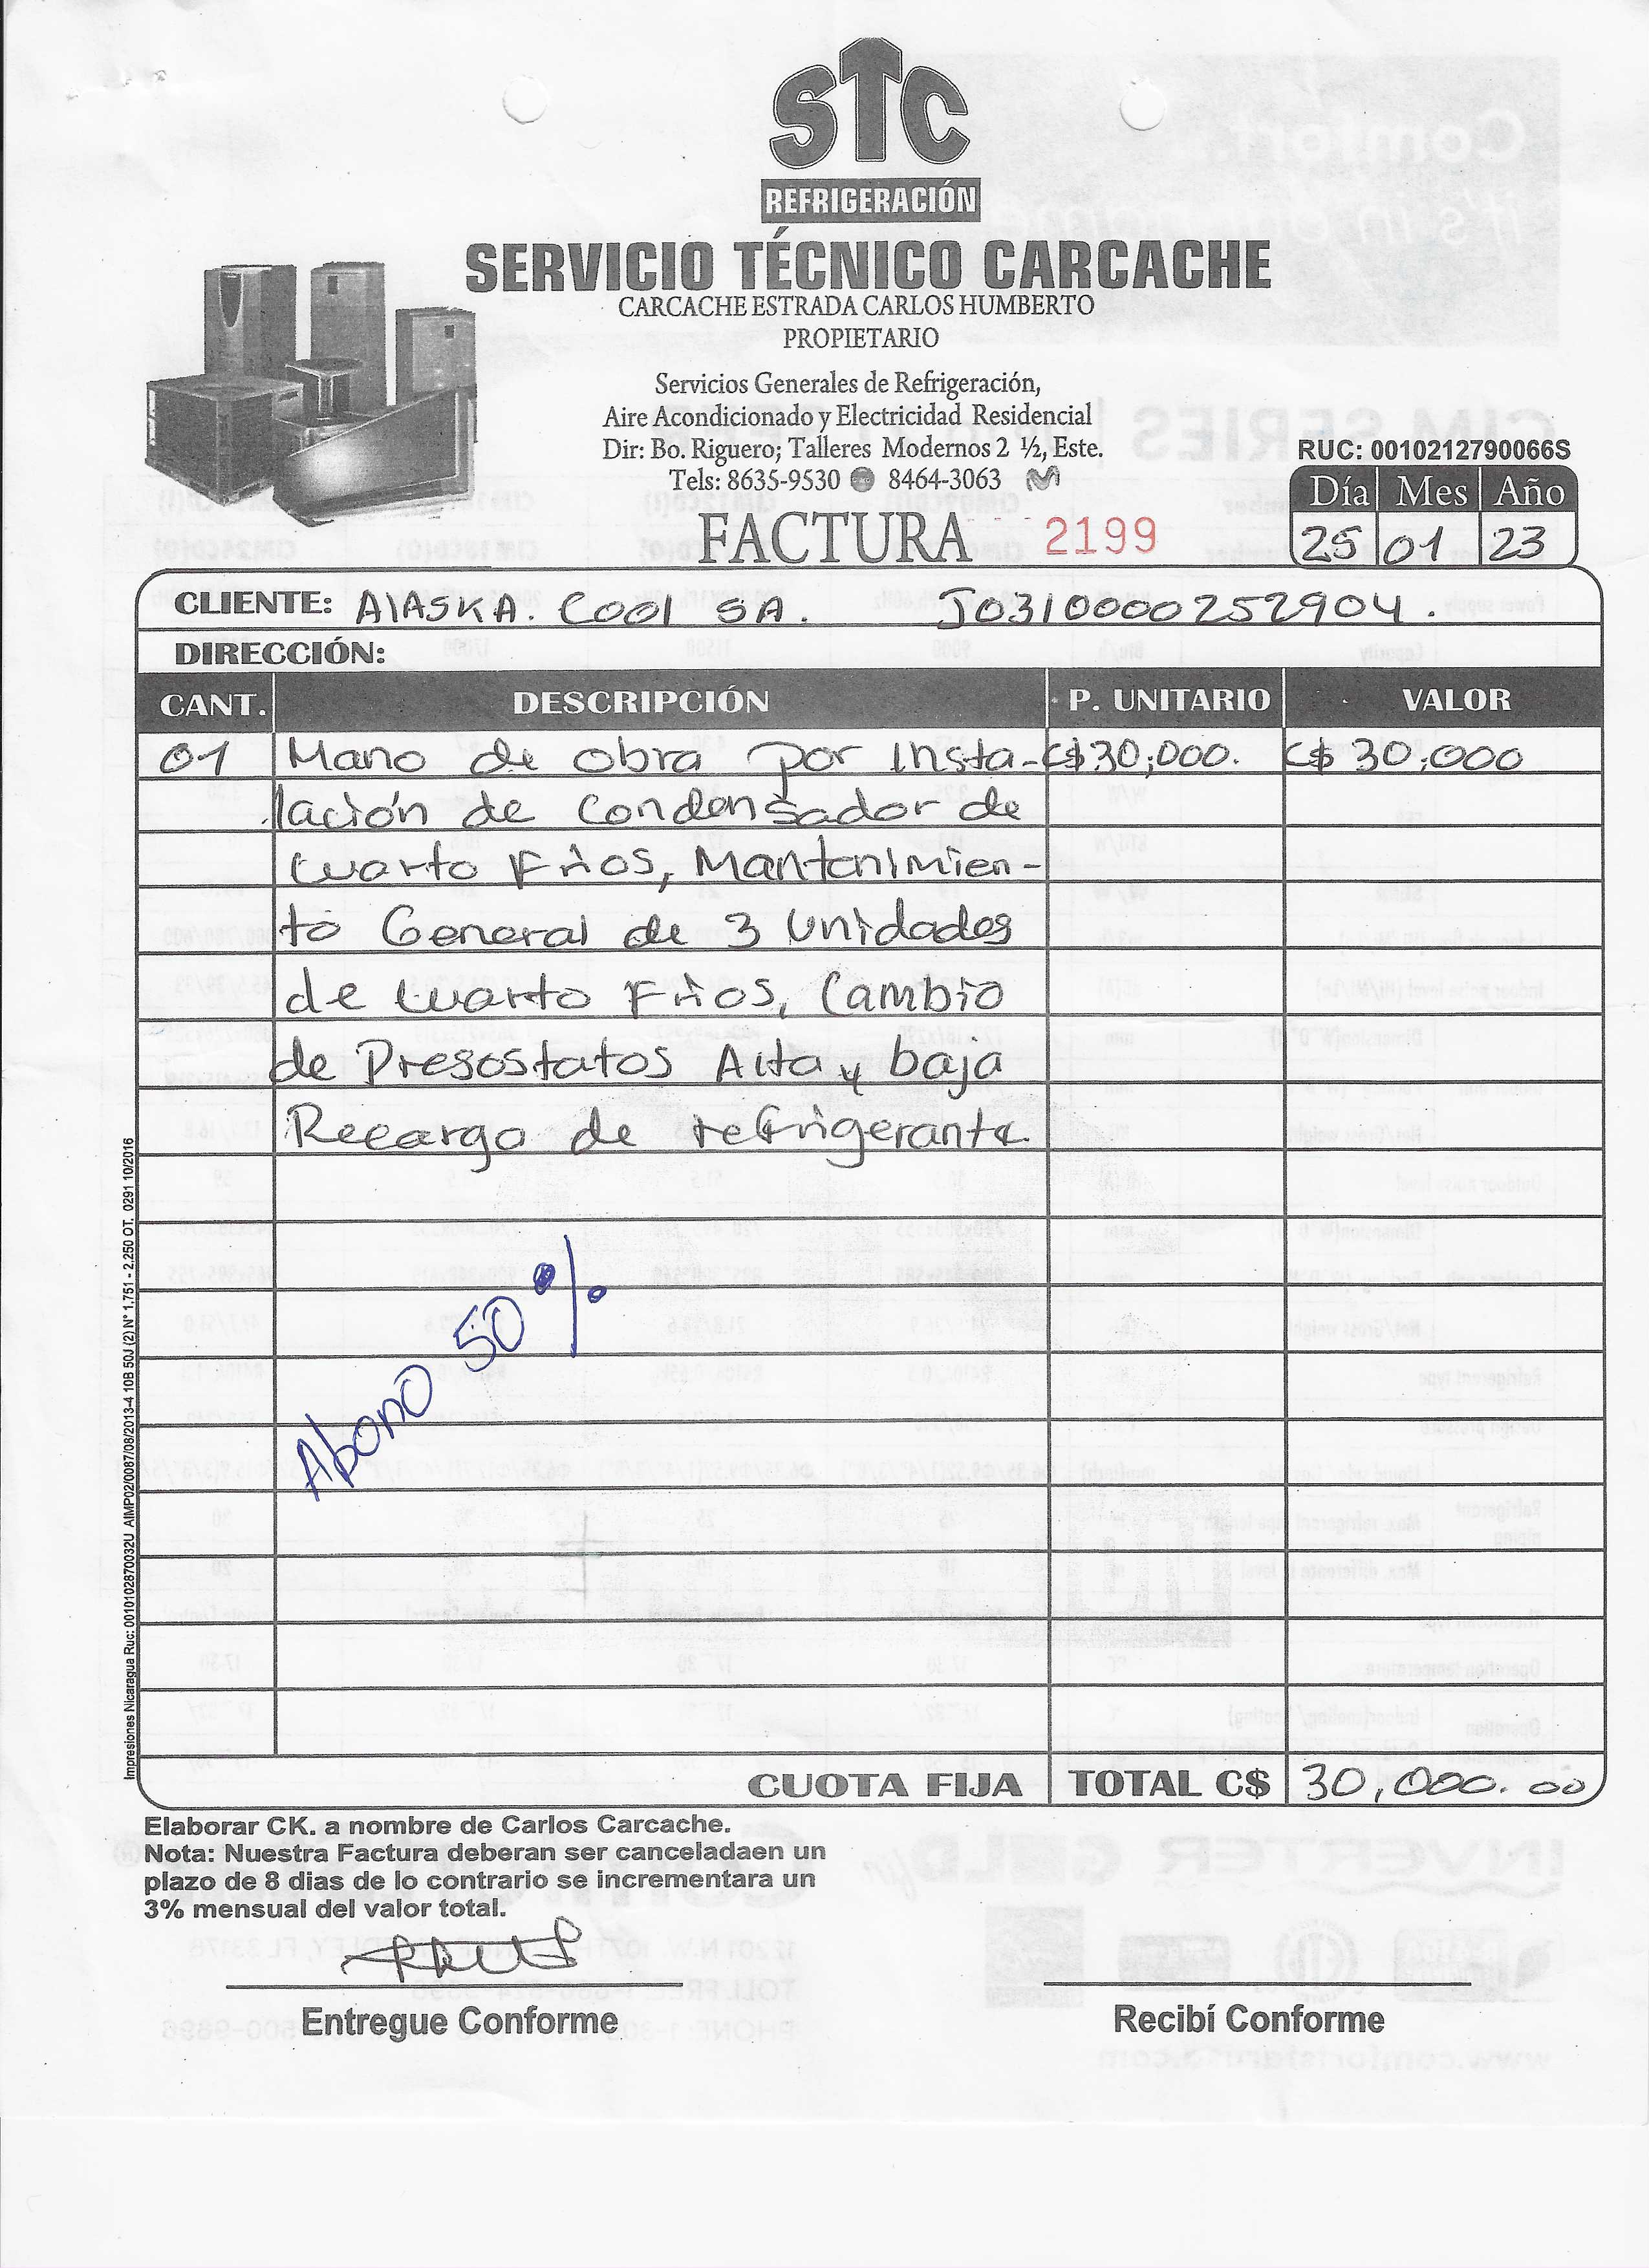 STC
REFRIGERACIÓN
SERVICIO TÉCNICO CARCACHE
CARCACHE ESTRADA CARLOS HUMBERTO
PROPIETARIO
Servicios Generales de Refrigeración,
Aire Acondicionado y Electricidad Residencial
Dir: Bo. Riguero; Talleres Modernos 2 ½, Este.
Tels: 8635-9530 8464-3063
RUC: 0010212790066S
Día Mes Año
25 01 23
FACTURA 2199
CLIENTE: AlASKA. Cool SA. J0310000252904.
DIRECCIÓN:
CANT. DESCRIPCIÓN P. UNITARIO VALOR
01 Mano de obra por Insta- C$30,000. C$ 30,000
lación de Condensador de
Cuarto Fríos, Mantenimien-
to General de 3 Unidades
de Cuarto Fríos, Cambio
de Presostatos Alta y baja
Recargo de refrigerante.
Abonó 50%
CUOTA FIJA TOTAL C$ 30,000.00
Impresiones Nicaragua Ruc: 0010102870032U AIMP02/0087/08/2013-4 10B 50J (2) N° 1,751 - 2,250 OT. 0291 10/2016
Elaborar CK. a nombre de Carlos Carcache.
Nota: Nuestra Factura deberan ser canceladaen un
plazo de 8 dias de lo contrario se incrementara un
3% mensual del valor total.
Entregue Conforme Recibí Conforme